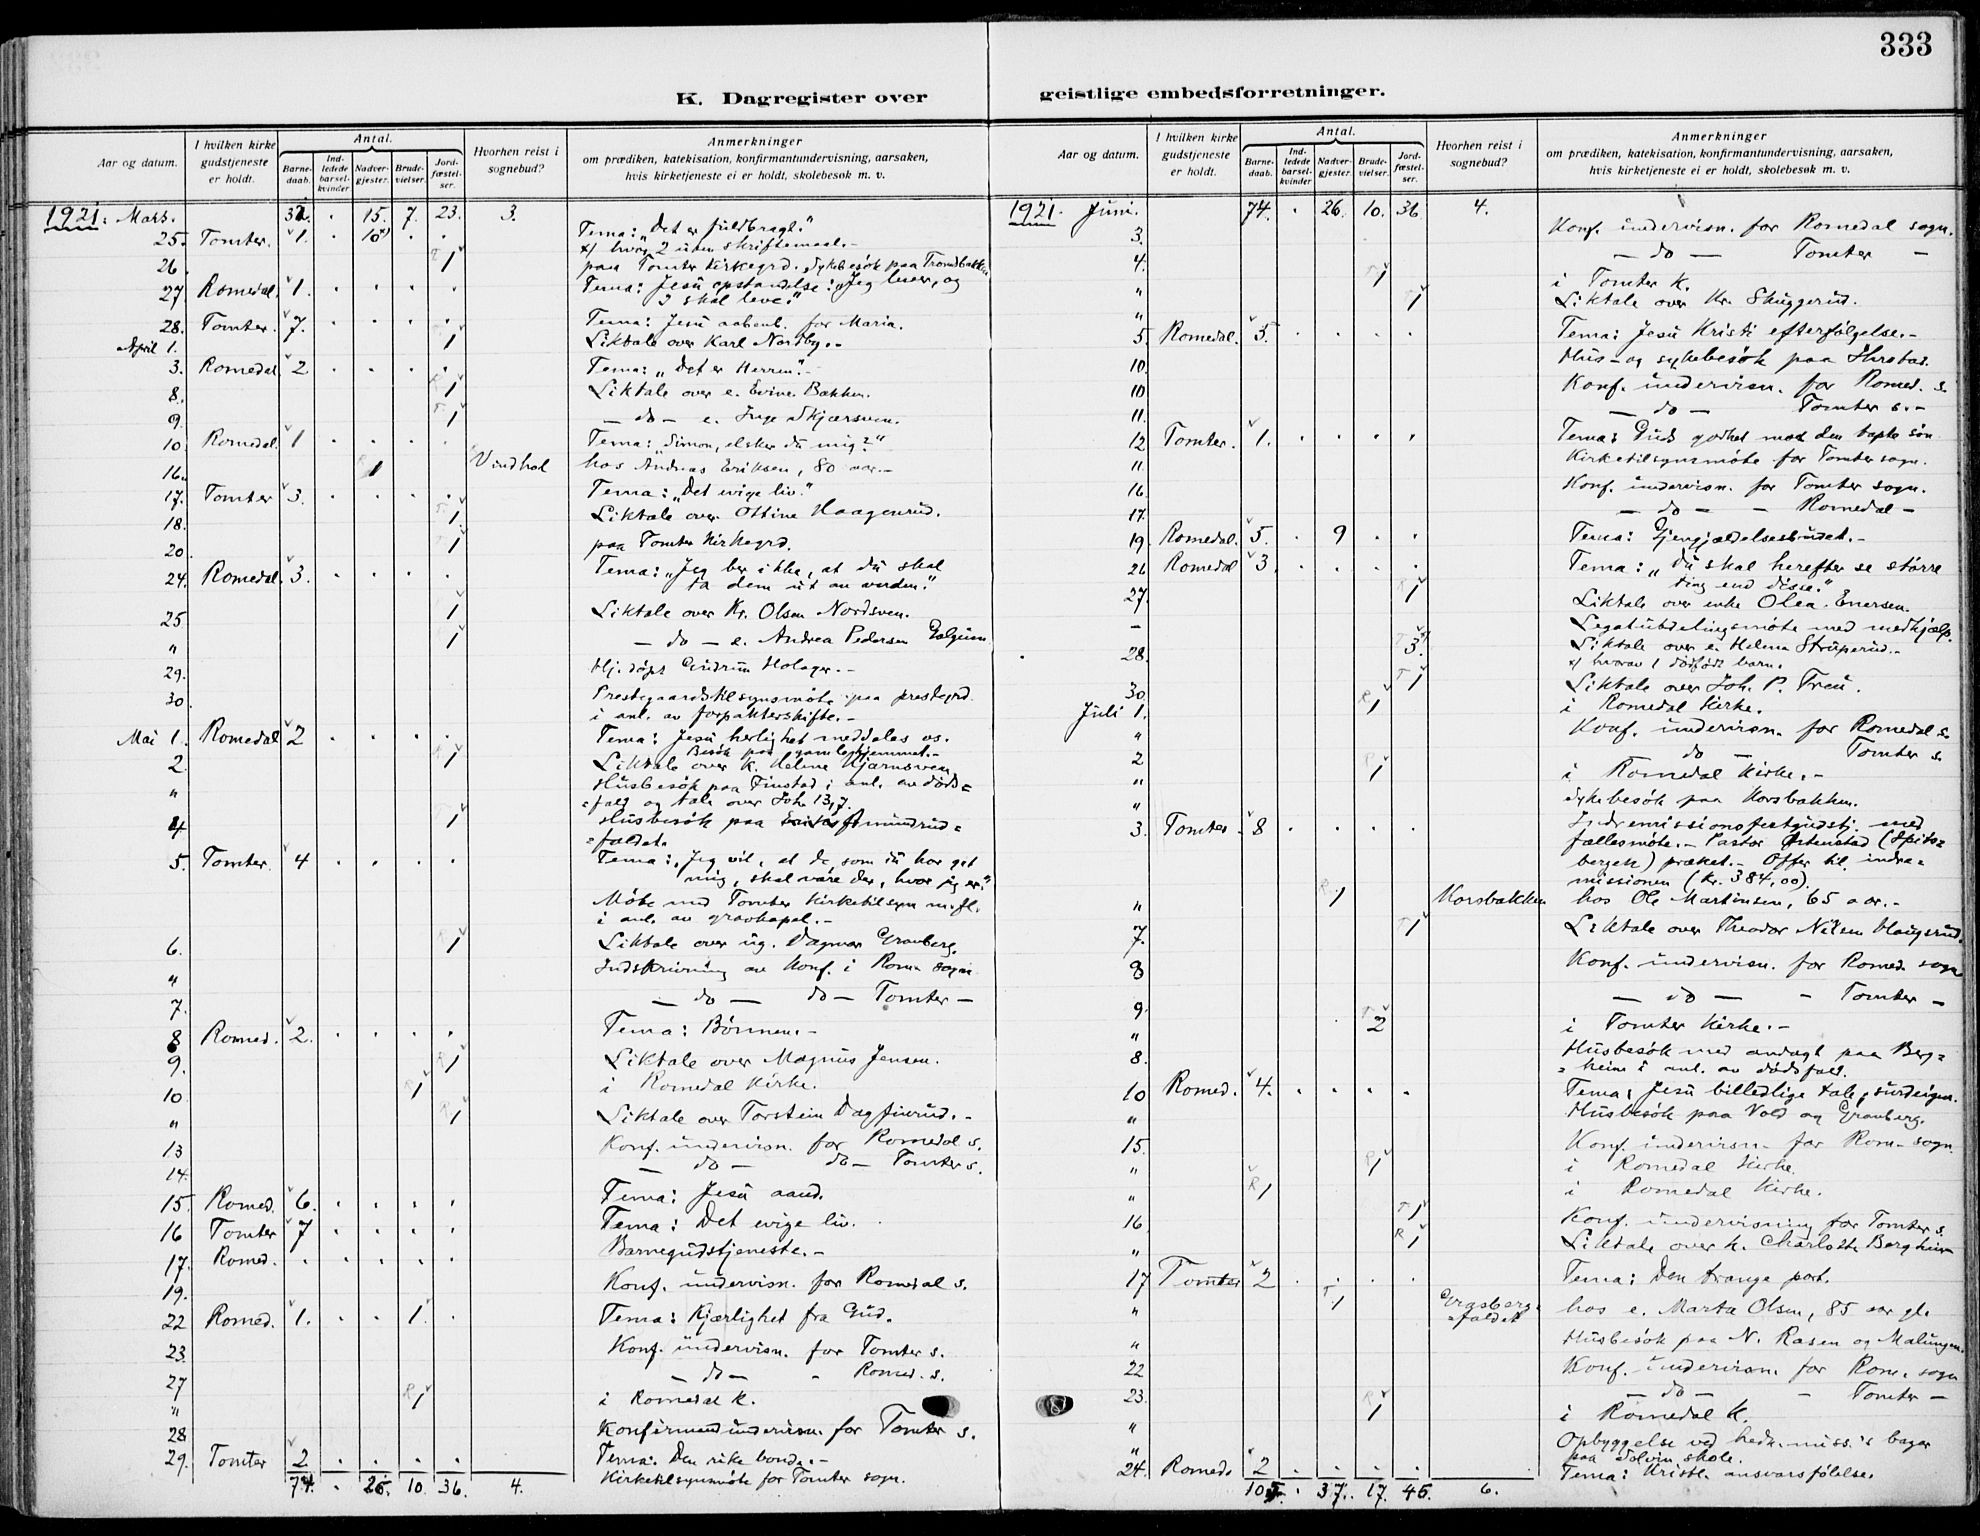 333
K. Dagregister over geistlige embedsforretninger.
Aar og datum. I hvilken kirke gudstjeneste er holdt. Antal. Barnedaab. Indledede barselkvinder Nadvergjester. Brudevielser. Jordfæstelser. Hvorhen reist i sognebud? Anmerkninger om prædiken, katekisation, konfirmantundervisning, aarsaken, hvis kirketjeneste ei er holdt, skolebesøk m. v.
1921. Mars. 32. . 15. 7. 23. 3.
25. Tomter. 1. . 10 x) . . Tema: „Det er fuldbragt."
x) hvorav 2 uten skriftemaal.-
26. T 1 paa Tomter Kirkegrd. Sykebesök paa Trondbakken
27 Romedal. 1. . . . . Tema: Jesu opstandelse: „Jeg lever, og
I skal leve."
28. Tomter. 7. . . . . Tema: Jesu aabenb. for Maria.
April 1. 1 Liktale over Karl Nordby.-
3. Romedal 2 . . . . Tema: „Det er Herren".-
8. R 1 Liktale over e. Evine Bakken.
9. T 1 — do — e. Inge Skjærsven.
10 Romedal. 1 . . . . Tema: „Simon, elsker du mig?"
16. R 1 Vindhol hos Andreas Eriksen, 80 aar.-
17. Tomter 3. . . . . Tema: „Det evige liv."
18. T 1 Liktale over Ottine Haagenrud.
20. T 1 paa Tomter Kirkegrd.
24. Romedal. 3. . . . . Tema: „Jeg ber ikke, at du skal
ta dem ut av verden."
25 1 Liktale over Kr. Olsen Nordsven.
" R 1 — do — e. Andrea Pedersen
29. Hj. döpt Gudrun Holager.-
30. Prestegaardstilsynsmöte paa prestegrd.
i anl. av forpakterskifte.-
Mai 1. Romedal 2 . . . . Tema: Jesu herlighet meddeles os.
Besök paa gamlehjemmet.-
2. R 1 Liktale over k. Helene Kjærnsven
" Husbesök paa Finstad i anl. av döds=
=fald og tale over Joh. 13,7.
4 T 1 Husbesök paa
=faldet.
5. Tomter. 4 . . . . Tema: „Jeg vil, at de, som du har get
mig, skal være der, hvor jeg er."
Möte med Tomter Kirketilsyn m. fl.
i anl. av gravkapel.-
6. R 1 Liktale over ug. Dagmar Granberg.
" Indskrivning av Konf. i Rom. sogn
7. — do — do — Tomter —
8 Romed. 2. . . . . Tema: Bönnen.-
9. R 1 Liktale over Magnus Jensen.
10 R 1 i Romedal Kirke.
" R 1 Liktale over Torstein Dagfinrud.-
13 Konf. undervisn. for Romedal s.
14. — do — do — Tomter s.
15. Romed. 6. . . . . Tema: Jesu aand.
16 Tomter 7 . . . . Tema: Det evige liv.
17. Romed. . . . . . Barnegudstjeneste.-
19. Konf. undervisn. for Romedal s.
22 Romed. 1. . . 1. . Tema: Kjærlighet fra Gud.
23. Konf. undervisn. for Tomter s.
27 — do — - Romed. s.
" R 1 i Romedal K.
28 Konfirmandundervisn. for Tomter s.
29. Tomter 2 . . . . Tema: Den rike bonde.-
Kirketilsynsmöte for Tomter sogn.
74. . 26. 10. 36. 4.
Aar og datum. I hvilken kirke gudstjeneste er holdt. Antal. Barnedaab. Indledede barselkvinder Nadvergjester. Brudevielser. Jordfæstelser. Hvorhen reist i sognebud? Anmerkninger om prædiken, katekisation, konfirmantundervisning, aarsaken, hvis kirketjeneste ei er holdt, skolebesøk m. v.
1921. Juni. 74. . 26. 10. 36 4.
3. Konf. undervisn. for Romedal sogn.
4. — do — Tomter —
" T 1 i Tomter K.
" T 1 Liktale over Kr. Skuggerud.
5. Romedal. 5. . . . . Tema: Jesu Kristi efterfölgelse.-
10. Hus- og sykebesök paa
10 Konf. undervisn. for Romed. s.
11. — do — Tomter s.-
12 Tomter. 1. . . . . Tema: Guds godhet mod den tapte sön
" Kirketilsynsmöte for Tomter sogn.
16. Konf. undervisn. for Tomter sogn.
17. — do — - Romedal —
19. Romedal. 5. . 9 . . Tema: Gjengjældelsesbudet.-
26 Romedal 3. . . . . Tema: „Du skal herefter se större
ting end disse."
27. R 1 Liktale over enke Olea Enersen.
- Legatutdelingsmöte med medhjælp.
28. T 3. x) Liktale over e. Helena Struperud.-
x) hvorav 1 dödfödt barn.
30. T 1 Liktale over Joh. P. Freu.
Juli 1. R 1 i Romedal Kirke.
" Konf. undervisn. for Romedal s.
2 do — Tomter s.
" R 1 i Romedal Kirke.-
" Sykebesök paa Korsbakken.
3. Tomter - 8 . . . . Indremissionsfestgudstj. med
fællesmöte.- Pastor Östenstad (Spits=
bergen) præket.- Offer til indre=
missionen (Kr. 384,00).
" R 1 Korsbakken hos Ole Martinsen, 65 aar.-
7. T 1 Liktale over Theodor Nilsen Haugsrud.
8 Konf. undervisn. for Romed. sogn
9. — do — - Tomter —
" T 2 i Tomter Kirke.-
8. Husbesök med andagt paa Berg=
=heim i anl. av dödsfald.
10 Romed. 4. . . . . Tema: Jesu billedlige tale, surdeigen.
" Husbesök paa Vold og Granberg.
15. Konf. undervisn. for Rom. sogn
" R 1 i Romedal Kirke.
" R 1 i Romedal Kirke.
16. T 1 Konf. undervisning for Tomter s.
" R 1 Liktale over k. Charlotte Bergheim
17 Tomter 2 . . . . Tema: Den trange port.
" T 1 =faldet hos e. Marta Olsen, 85 aar gl.
" Husbesök paa N. Rasen og Malungen.
22 Konf. undervisn. for Rom. sogn
23. — do — - Tomter —
" R 1 i Romedal K.
" Opbyggelse ved hedn.miss.'s bazar
paa Solvin skole.
24. Romed. 2 . . . . Tema: Kristl. ansvarsfölelse.
105. . 37. 17. 45. 6.